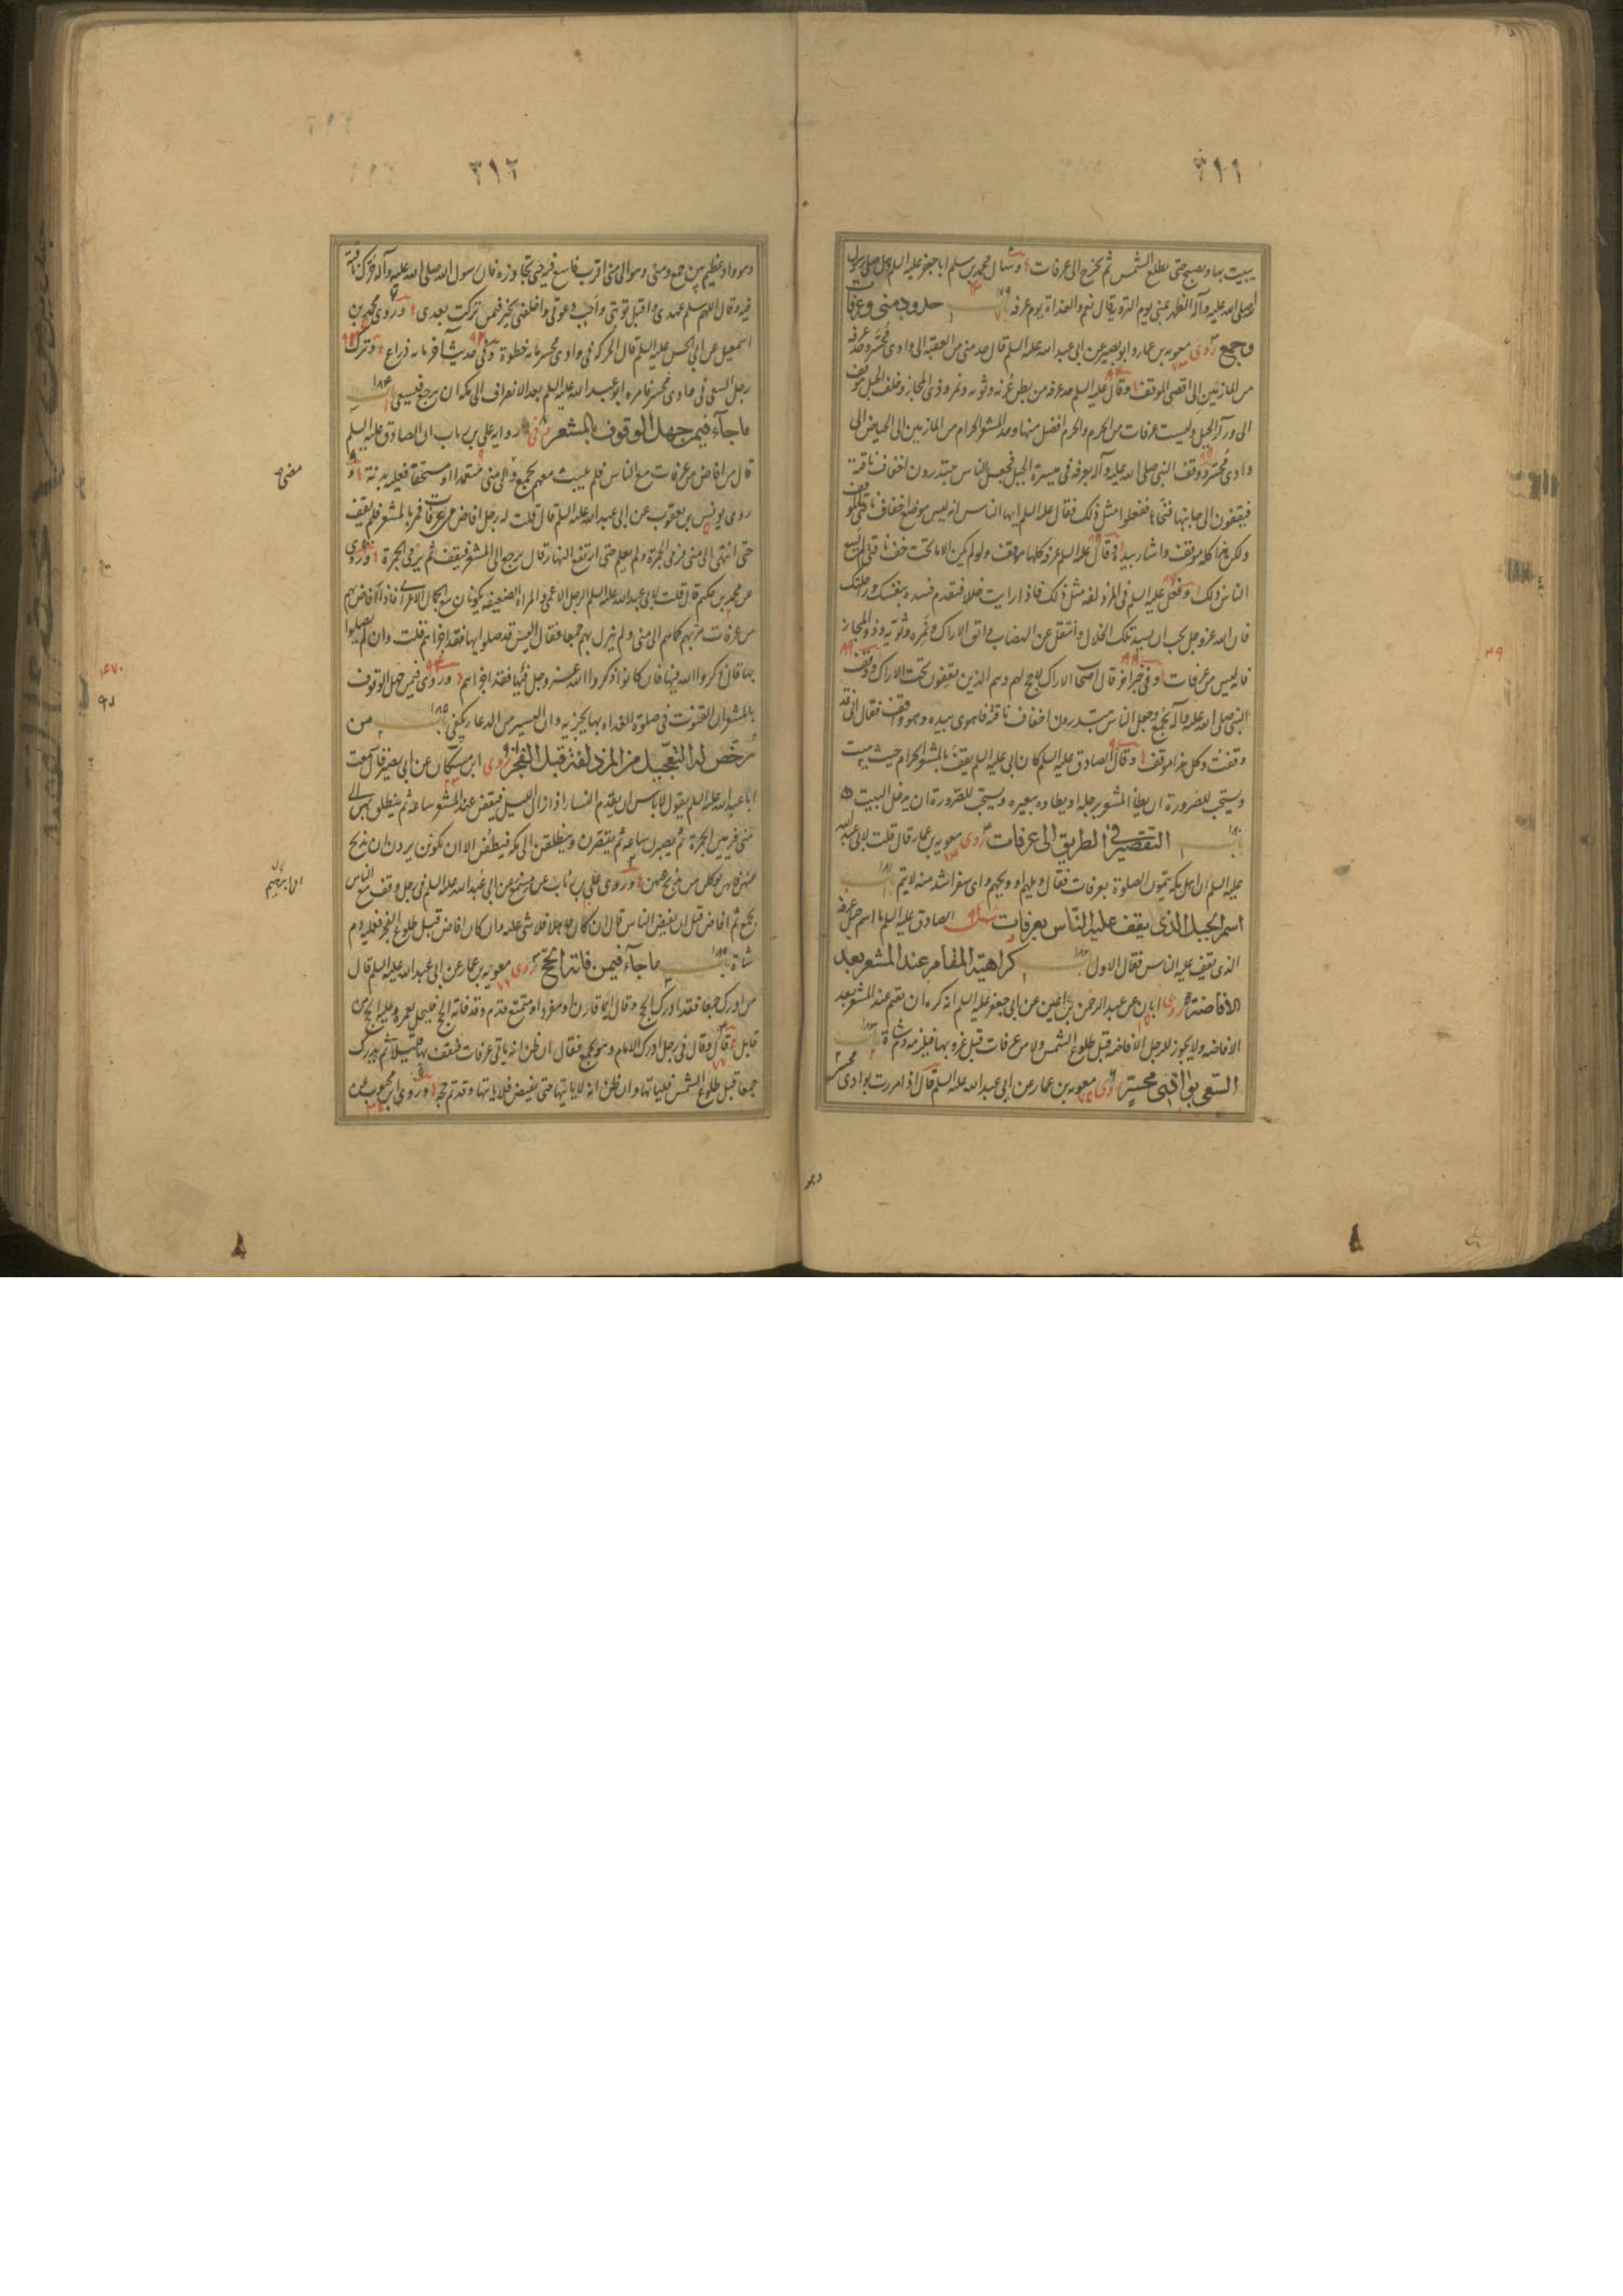 ٣١١
يبيت بها ويصبح حتى يطلع الشمس ثم يخرج الى عرفات وسال محمد بن مسلم ابا جعفر عليه السلم هل صلى رسول
الله صلى الله عليه وآله الظهر بمنى يوم التروية قال نعم والغداة يوم عرفه باب ١٧٩ حدود منى وعرفات
وجمع روى معويه بن عمار وابو بصير عن ابى عبد الله عليه السلم قال حد منى من العقبة الى وادى محسر وحد عرفه
من المازمين الى اقصى الموقف وقال عليه السلم حد عرفه من بطن عرنه وثويه ونمره وذى المجاز وخلف الجبل موقف
الى ورآء الجبل وليست عرفات من الحرم والحرم افضل منها وحد المشعر الحرام من المازمين الى الحياض الى
وادى محسر ووقف النبى صلى الله عليه وآله بعرفه فى ميسرة الجبل فجعل الناس يبتدرون اخفاف ناقته
فيقفون الى جانبها فنحاها ففعلوا مثل ذلك فقال عليه السلم ايها الناس انه ليس موضع اخفاف ناقتى الموقف
ولكن هذا كله موقف واشار بيده وقال عليه السلم عرفه كلها موقف ولو لم يكن الا ما تحت خف ناقتى لم يسع
الناس ذلك وفعل عليه السلم فى المزدلفه مثل ذلك فاذا رايت خللا فتقدم فسده بنفسك وراحلتك
فان الله عز وجل يحب ان يسد تلك الخلال وانتقل عن الهضاب واتق الاراك ونمره وثويه وذو المجاز
فانه ليس من عرفات وفى خبر اخر قال اصحاب الاراك لا حج لهم وهم الذين يقفون تحت الاراك ووقف
النبى صلى الله عليه وآله بجمع وجعل الناس يبتدرون اخفاف ناقته فاهوى بيده وهو واقف فقال انى قد
وقفت وكل هذا موقف وقال الصادق عليه السلم كان ابى عليه السلم يقف بالمشعر الحرام حيث يبيت
ويستحب للصرورة ان يطأ المشعر برجله او يطاه ببعيره ويستحب للصرورة ان يدخل البيت
باب ١٨٠ التقصير فى الطريق الى عرفات روى معويه بن عمار قال قلت لابى عبد الله
عليه السلم ان اهل مكه يتمون الصلوة بعرفات فقال ويلهم او ويحهم واى سفر اشد منه لا يتم باب ١٨١
اسم الجبل الذى يقف عليه الناس بعرفات سئل الصادق عليه السلم ما اسم جبل عرفه
الذى يقف عليه الناس فقال الاول باب ١٨٢ كراهية المقام عند المشعر بعد
الافاضة روى ابان عن عبد الرحمن بن اعين عن ابى جعفر عليه السلم انه كره ان يقيم عند المشعر بعد
الافاضه ولا يجوز للرجل الافاضه قبل طلوع الشمس ولا من عرفات قبل غروبها فيلزمه دم شاة باب ١٨٣
السعى فى وادى محسر روى معويه بن عمار عن ابى عبد الله عليه السلم قال اذا مررت بوادى محسر
وهو
٣١٢
وهو واد عظيم بين جمع ومنى وهو الى منى اقرب فاسع فيه حتى تجاوزه فان رسول الله صلى الله عليه وآله حرك ناقته
فيه وقال اللهم سلم عهدى واقبل توبتى واجب دعوتى واخلفنى بخير فيمن تركت بعدى وروى محمد بن
اسمعيل عن ابى الحسن عليه السلم قال الحركة فى وادى محسر مائه خطوة وفى حديث آخر مائه ذراع وترك
رجل السعى فى وادى محسر فامره ابو عبد الله عليه السلم بعد الانصراف الى مكه ان يرجع فيسعى باب ١٨٤
ما جآء فيمن جهل الوقوف بالمشعر فى رواية على بن رئاب ان الصادق عليه السلم
قال من افاض من عرفات مع الناس فلم يلبث معهم بجمع ومضى الى منى متعمدا او مستخفا فعليه بدنة و
روى يونس بن يعقوب عن ابى عبد الله عليه السلم قال قلت له رجل افاض من عرفات فمر بالمشعر فلم يقف
حتى انتهى الى منى فرمى الجمرة ولم يعلم حتى ارتفع النهار قال يرجع الى المشعر فيقف ثم يرمى الجمرة وروى
عن محمد بن حكيم قال قلت لابى عبد الله عليه السلم الرجل الاعمى والمراة الضعيفه يكونان مع الجمال الاعرابى فاذا افاض بهم
من عرفات مر بهم كما هم الى منى ولم ينزل بهم جمعا فقال اليس قد صلوا بها فقد اجزاهم قلت وان لم يصلوا
بها قال ذكروا الله فيها فان كانوا ذكروا الله عز وجل فيها فقد اجزاهم وروى فيمن جهل الوقوف
بالمشعر ان القنوت فى صلوة الغداه بها يجزيه وان اليسير من الدعاء يكفى باب ١٨٥ من
رخص له التعجيل من المزدلفة قبل الفجر روى ابن مسكان عن ابى بصير قال سمعت
ابا عبد الله عليه السلم يقول لا باس ان يقدم النساء اذا زال الليل فيقفن عند المشعر ساعه ثم ينطلق بهن الى
منى فيرمين الجمرة ثم يصبرن ساعه ثم يقصرن وينطلقن الى مكه فيطفن الا ان يكون يردن ان يذبح
عنهن فانهن يوكلن من يذبح عنهن وروى على بن رئاب عن مسمع عن ابى عبد الله عليه السلم فى رجل وقف مع الناس
بجمع ثم افاض قبل ان يفيض الناس قال ان كان جاهلا فلا شى عليه وان كان افاض قبل طلوع الفجر فعليه دم
شاة باب ١٨٦ ما جآء فيمن فاته الحج روى معويه بن عمار عن ابى عبد الله عليه السلم قال
من ادرك جمعا فقد ادرك الحج وقال ايما قارن او مفرد او متمتع قدم وقد فاته الحج فليحل بعمره وعليه الحج من
قابل قال وقال فى رجل ادرك الامام وهو بجمع فقال ان ظن انه ياتى عرفات فيقف بها قليلا ثم يدرك
جمعا قبل طلوع الشمس فلياتها وان ظن انه لا ياتيها حتى يفيضوا فلا ياتها وقد تم حجه وروى ابن محبوب عن
مضى